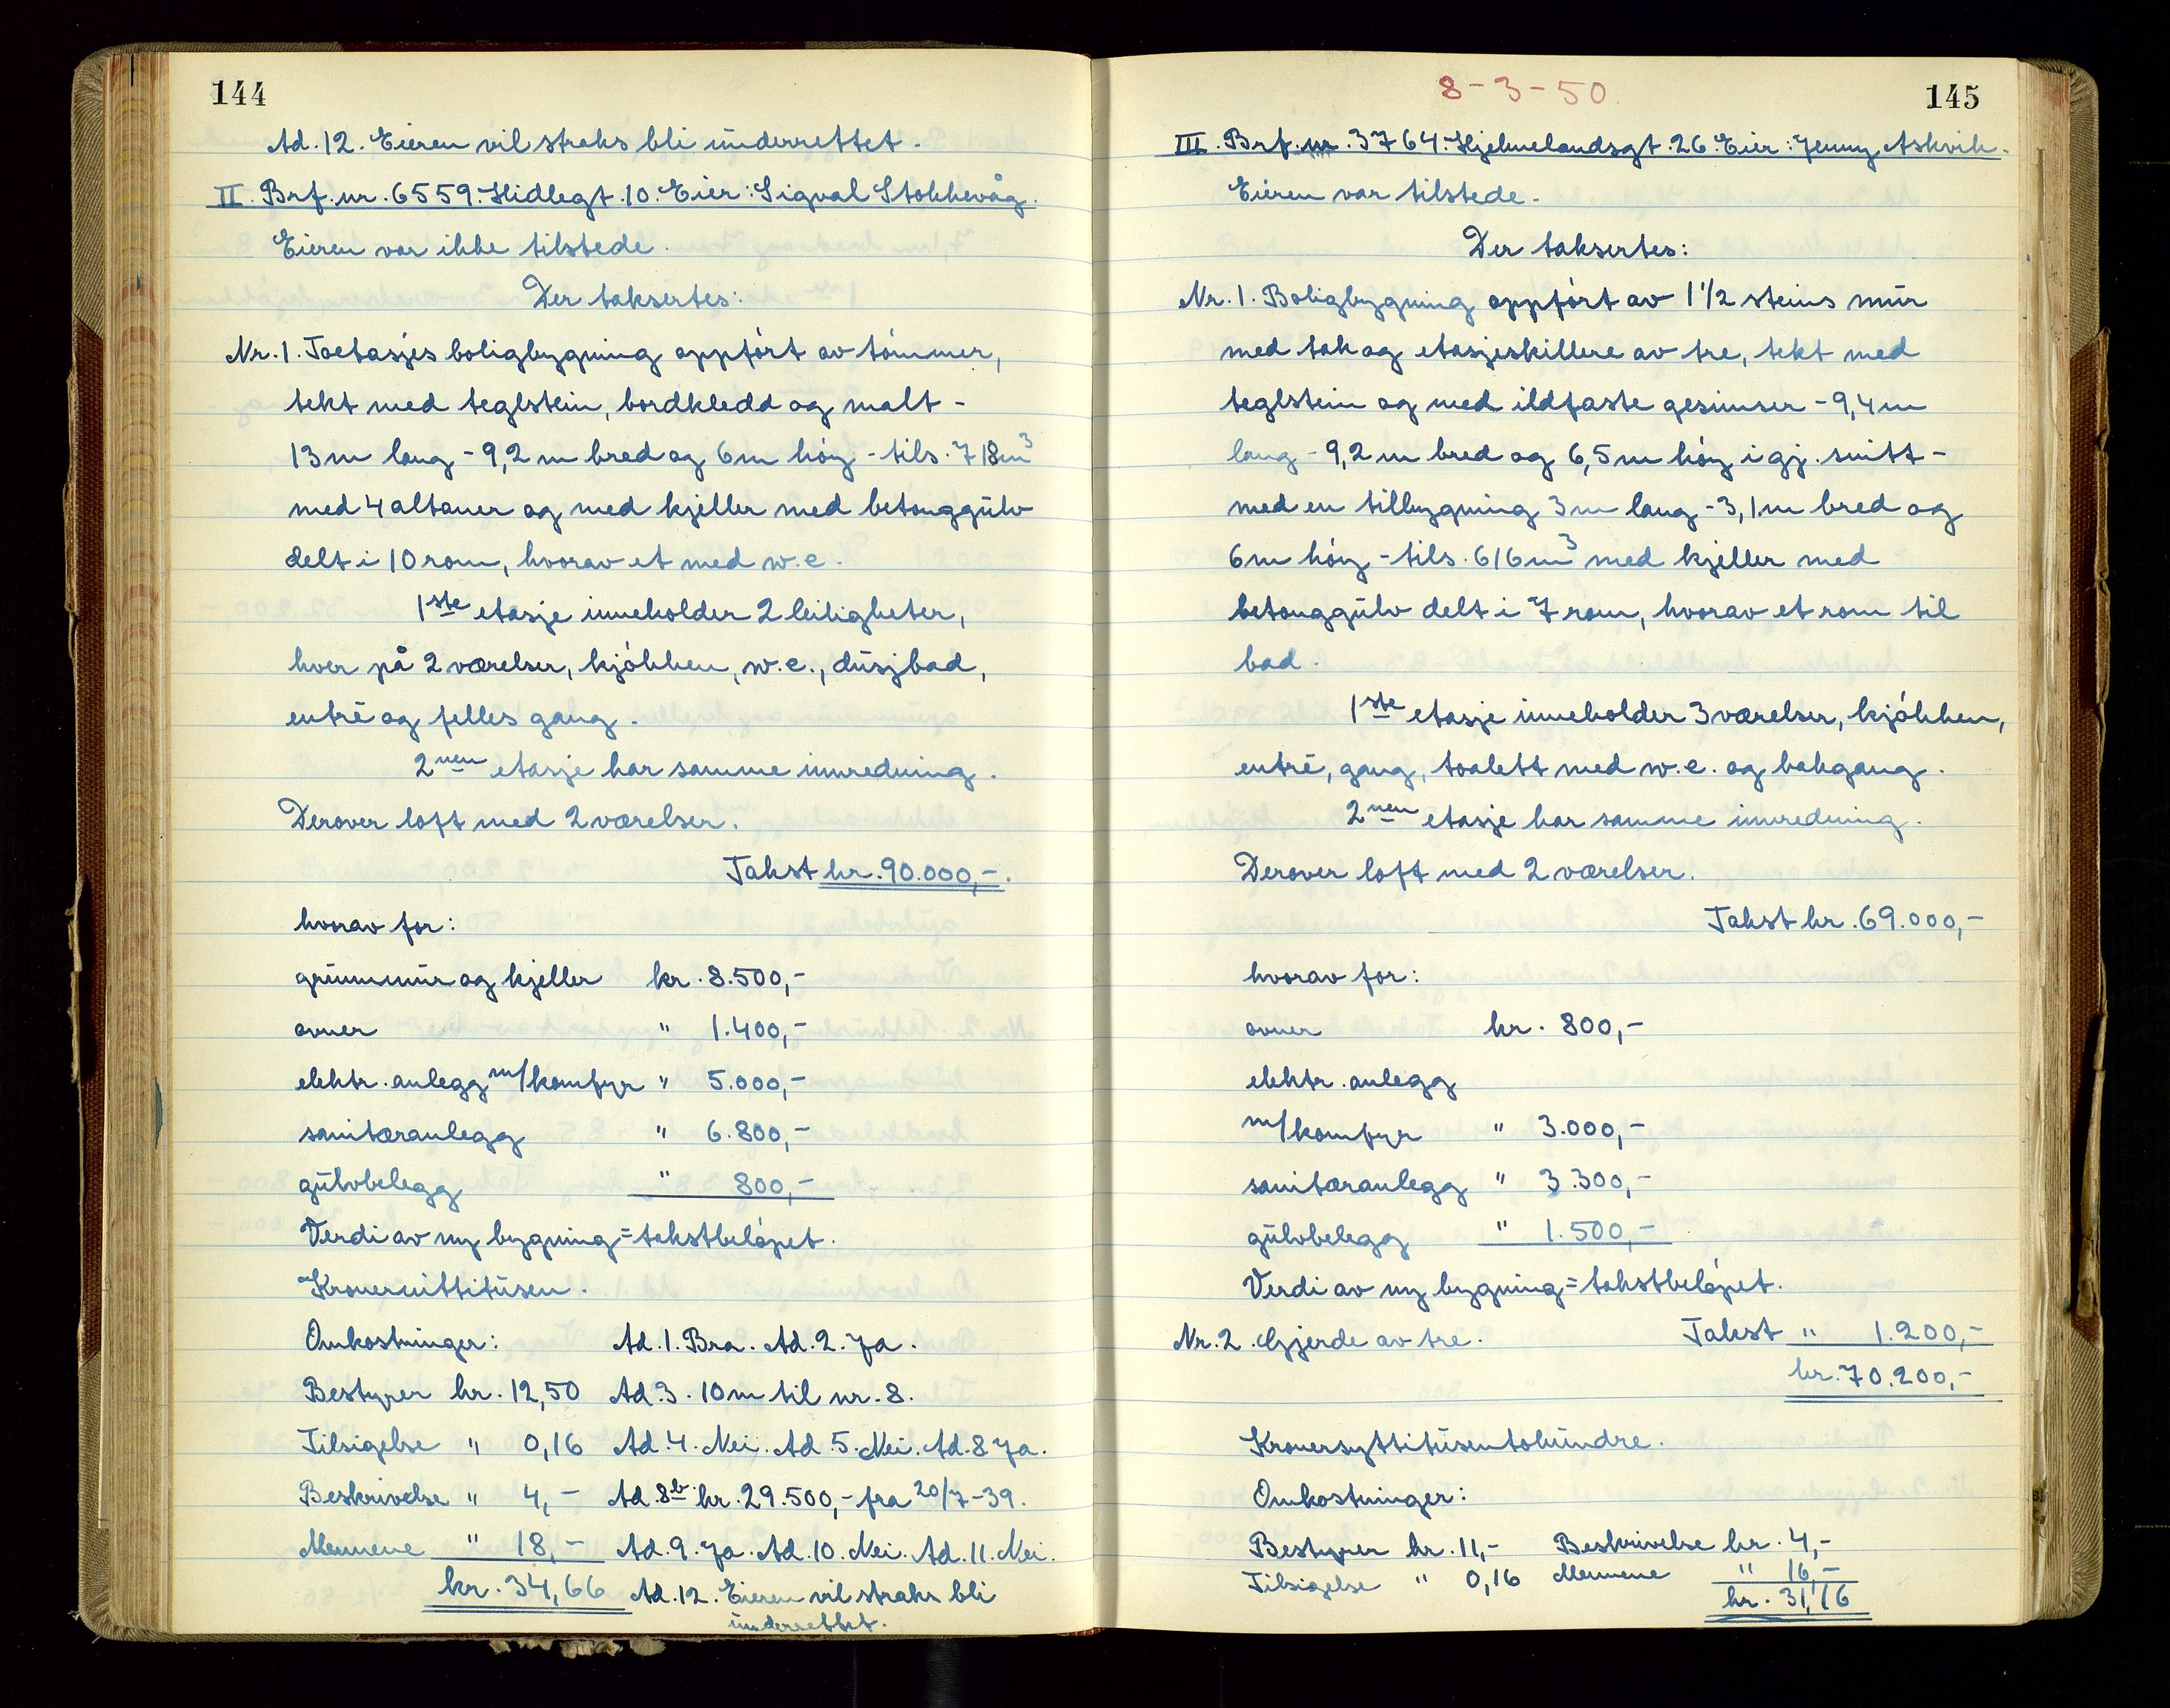 144
Ad. 12. Eieren vil straks bli underrettet.
II. Brf. nr. 6559. Hidlegt. 10. Eier: Sigval Stokkevåg.
Eieren var ikke tilstede.
Der taksertes:
Nr. 1. Toetasjes boligbygning oppført av tømmer,
tekt med teglstein, bordkledd og malt -
13 m lang - 9,2 m bred og 6 m høy - tils. 718 m³
med 4 altaner og med kjeller med betonggulv
delt i 10 rom, hvorav et med w.c.
1ste etasje inneholder 2 leiligheter,
hver på 2 værelser, kjøkken, w.c., dusjbad,
entré og felles gang.
2nen etasje har samme innredning.
Derover loft med 2 værelser.
Takst kr. 90.000,-.
hvorav for:
grunnmur og kjeller kr. 8.500,-
ovner " 1.400,-
elektr. anlegg m/komfyr " 5.000,-
sanitæranlegg " 6.800,-
gulvbelegg " 800,-
Verdi av ny bygning = takstbeløpet.
Kronernittitusen.
Omkostninger: Ad. 1. Bra. Ad. 2. Ja.
Bestyrer kr. 12,50 Ad. 3. 10 m til nr. 8.
Tilsigelse " 0,16 Ad. 4. Nei. Ad. 5. Nei. Ad. 8 Ja.
Beskrivelse " 4,- Ad. 8b. kr. 29.500,- fra 20/7-39.
Mennene " 18,- Ad. 9. Ja. Ad. 10. Nei. Ad. 11. Nei.
kr. 34,66 Ad. 12. Eieren vil straks bli
underrettet.
8-3-50.
145
III. Brf. nr. 3764. Hjelmelandsgt. 26. Eier: Jenny Askvik.
Eieren var tilstede.
Der taksertes:
Nr. 1. Boligbygning oppført av 1 1/2 steins mur
med tak og etasjeskillere av tre, tekt med
teglstein og med ildfaste gesimser - 9,4 m
lang - 9,2 m bred og 6,5 m høy i gj. snitt -
med en tilbygning 3 m lang - 3,1 m bred og
6 m høy - tils. 616 m³ med kjeller med
betonggulv delt i 7 rom, hvorav et rom til
bad.
1ste etasje inneholder 3 værelser, kjøkken,
entré, gang, toalett med w.c. og bakgang.
2nen etasje har samme innredning.
Derover loft med 2 værelser.
Takst kr. 69.000,-
hvorav for:
ovner kr. 800,-
elektr. anlegg
m/komfyr " 3.000,-
sanitæranlegg " 3.300,-
gulvbelegg " 1.500,-
Verdi av ny bygning = takstbeløpet.
Nr. 2. Gjerde av tre. Takst " 1.200,-
kr. 70.200,-
Kronersyttitusentohundre.
Omkostninger:
Bestyrer kr. 11,- Beskrivelse kr. 4,-
Tilsigelse " 0,16 Mennene " 16,-
kr. 31,16